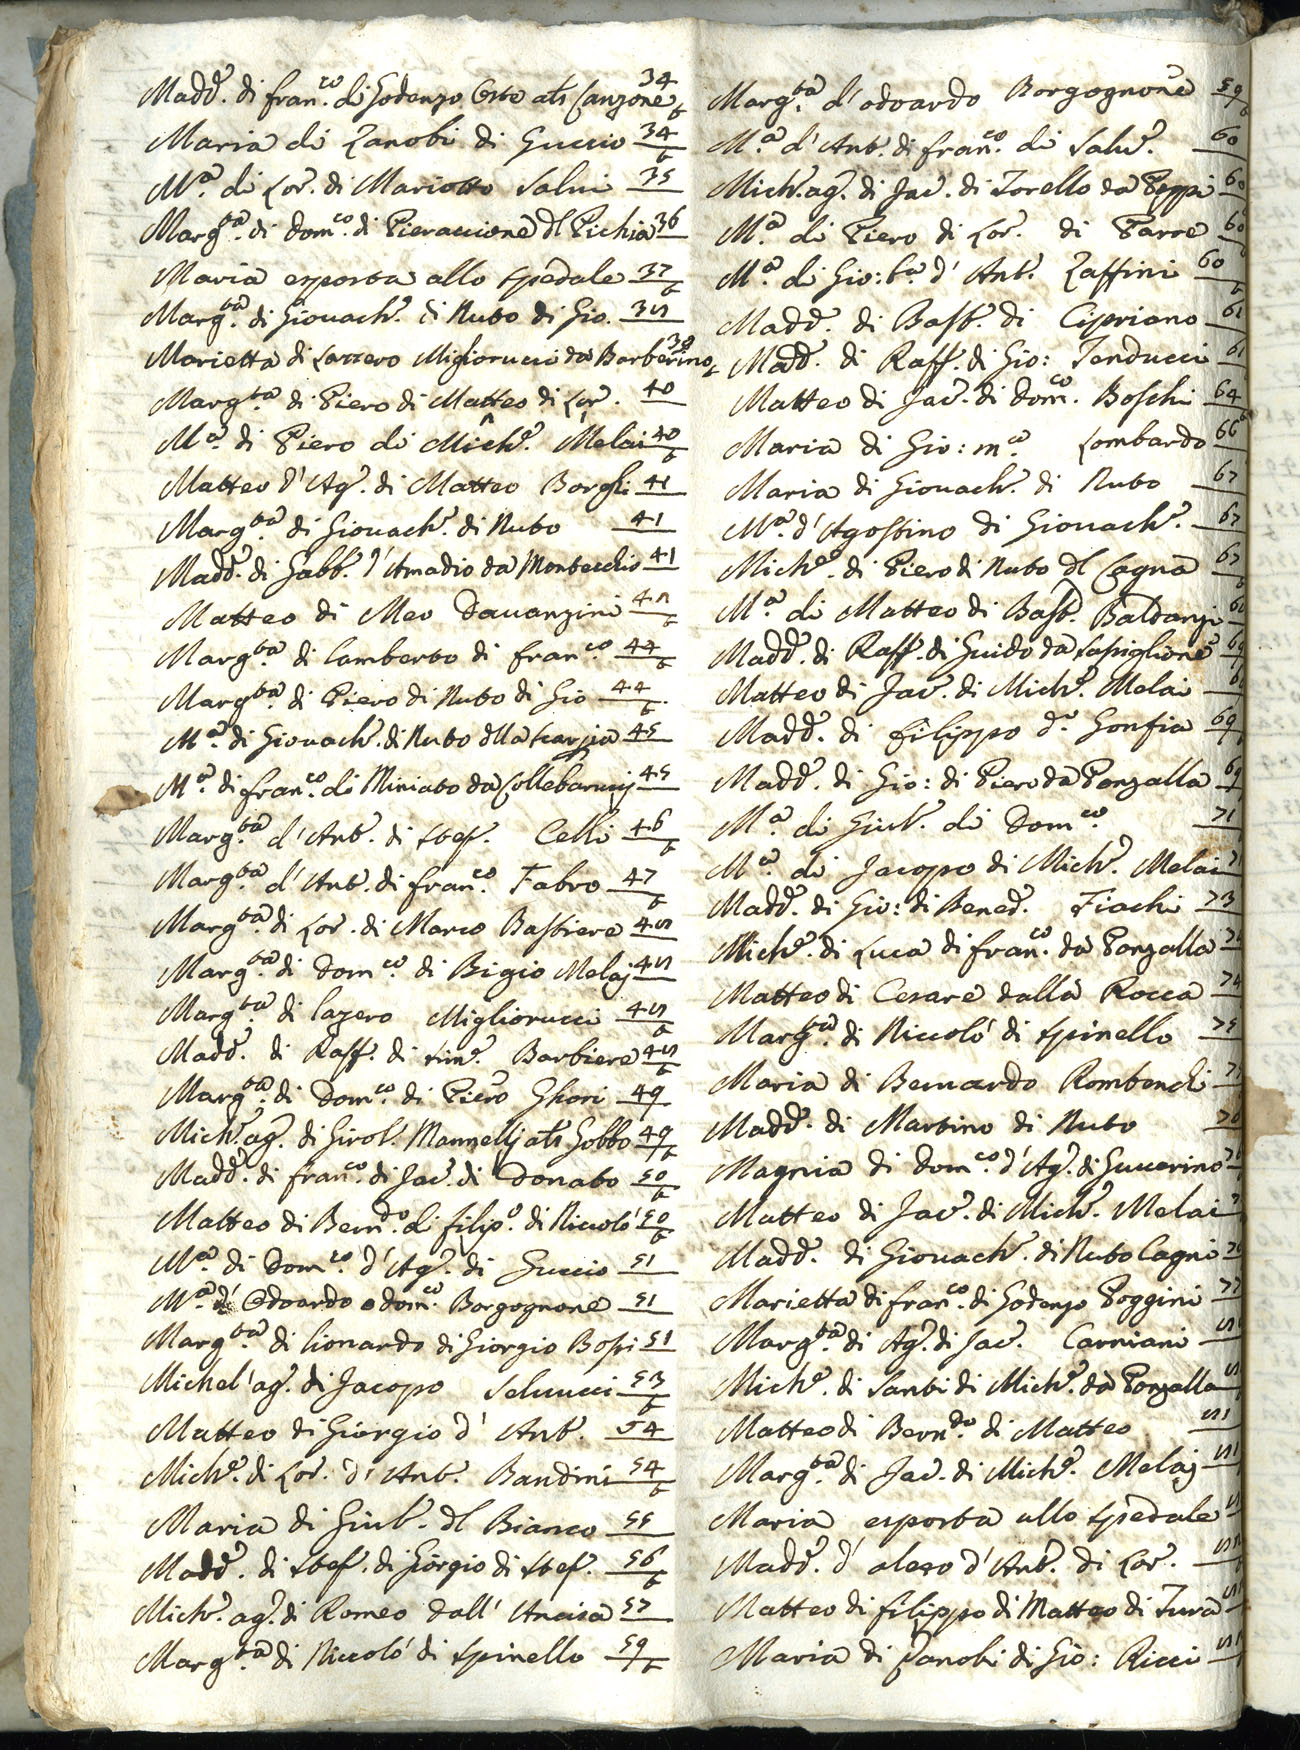 Madd.ª di fran.co di Godenzo Oste als Canzone 34 t
Maria di Zanobi di Guccio 34 t
M.a di Lor.º di Mariotto Salni 35
Marg.ta di Dom.co di Pieraccione dl Pichia 36
Maria esposta allo spedale 37 t
Marg.ta di Giovach.º di Nuto di Gio. 38
Marietta di Lazzero Migliorucci da Barberino 39 t
Marg.ta di Piero di Matteo di Lor.º 40
M.a di Piero di Mich.e Melai 40 t
Matteo d'Ag.º di Matteo Borghi 41
Marg.ta di Giovach.º di Nuto 41
Madd.ª di Gabb.º d'Amadio da Montecchio 41
Matteo di Meo Davanzini 42 t
Marg.ta di Lamberto di fran.co 44 t
Marg.ta di Piero di Nuto di Gio 44 t
M.a di Giovach.º di Nuto dlla Scarpia 45
M.a di fran.co di Miniato da Collebarucij 45
Marg.ta d'Ant.º di Stef.º Celli 46 t
Marg.ta d'Ant.º di fran.co Fabro 47 t
Marg.ta di Lor.º di Marco Bastiere 48
Marg.ta di Dom.co di Bigio Melaj 48
Marg.ta di Lazero Migliorucci 48 t
Madd.ª di Raff.º di Sim.e Barbiere 48 t
Marg.ta di Dom.co di Piero Ghori 49
Mich.ag.º di Girol.º Mannellj als Gobbo 49 t
Madd.ª di fran.co di Jac.º di Donato 50 t
Matteo di Bern.do di filip.º di Niccolò 50 t
M.a di Dom.co d'Ag.º di Guccio 51
M.a d'Odoardo o dom.co Borgognone 51
Marg.ta di Lionardo di Giorgio Bossi 51
Michel'ag.º di Jacopo Selvucci 53 t
Matteo di Giorgio d'Ant.º 54
Mich.e di Lor.º d'Ant.º Bandini 54 t
Maria di Giul.º dl Bianco 55
Madd.ª di Stef.º di Giorgio di Stef.º 56 t
Mich.º ag.º di Romeo dall'Ancisa 57
Marg.ta di Niccolò di Spinello 59 t
Marg.ta d'Odoardo Borgognone 59 t
M.a d'Ant.º di fran.co di Salv.e 60
Mich.ag.º di Jac.º di Torello da Poppi 60
M.a di Piero di Lor.º di Farre 60
M.a di Gio:b.a d'Ant.º Zaffini 60 t
Madd.ª di Bast.º di Cipriano 61
Madd.ª di Raff.º di Gio: Tenducci 61
Matteo di Jac.º di Dom.co Boschi 64
Maria di Gio:m.a Lombardo 66
Maria di Giovach.º di Nuto 67
M.a d'Agostino di Giovach.º 67
Mich.e di Piero di Nuto dl Cagna 67
M.a di Matteo di Bast.º Baldanzi
Madd.ª di Raff.º di Guido da Castiglione 69
Matteo di Jac.º di Mich.e Melai
Madd.ª di filippo d.º Gonfia 69
Madd.ª di Gio: di Piero da Ponzalla 69
M.a di Giul.º di Dom.co 71
M.a di Jacopo di Mich.e Melai
Madd.ª di Gio: di Bened.º Fiachi 73
Mich.e di Luca di fran.co da Ponzalla
Matteo di Cesare dalla Rocca 74
Marg.ta di Niccolò di Spinello 75
Maria di Bernardo Rombenchi
Madd.ª di Martino di Nuto 76
Magnia di Dom.co d'Ag.º di Guccerino
Matteo di Jac.º di Mich.e Melai
Madd.ª di Giovach.º di Nuto Cagni
Marietta di fran.co di Godenzo Poggini 77
Marg.ta di Ag.º di Jac.º Carniani
Mich.e di Santi di Mich.e da Ponzalla
Matteo di Bern.do di Matteo 81
Marg.ta di Jac.º di Mich.e Melaj 81
Maria esposta allo spedale
Madd.ª d'Aleso d'Ant.º di Lor.º
Matteo di filippo di Matteo di Tura
Maria di Zanobi di Gio: Ricci